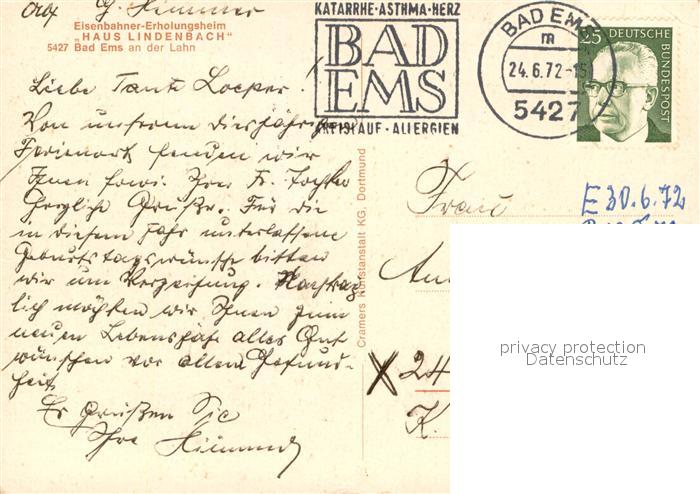 Eisenbahner-Erholungsheim
„HAUS LINDENBACH"
5427 Bad Ems an der Lahn
KATARRHE·ASTHMA·HERZ
BAD
EMS
KREISLAUF·ALLERGIEN
BAD EMS
m
24.6.72-15
5427
25 DEUTSCHE
BUNDESPOST
Liebe Tante !
Von unserem diesjährigen
Ferienort senden wir
Ihnen sowie Ihrer Fr. Tochter
herzliche Grüße. Für die
in diesem Jahr unterlassene
Geburtstagswünsche bitten
wir um Verzeihung. Nachträg-
lich möchten wir Ihnen zum
neuen Lebensjahr alles Gute
wünschen vor allem Gesund-
heit.
Es grüßen Sie
Ihre
Cramers Kunstanstalt KG, Dortmund
Frau
E 30.6.72
X 24
K.
privacy protection
Datenschutz